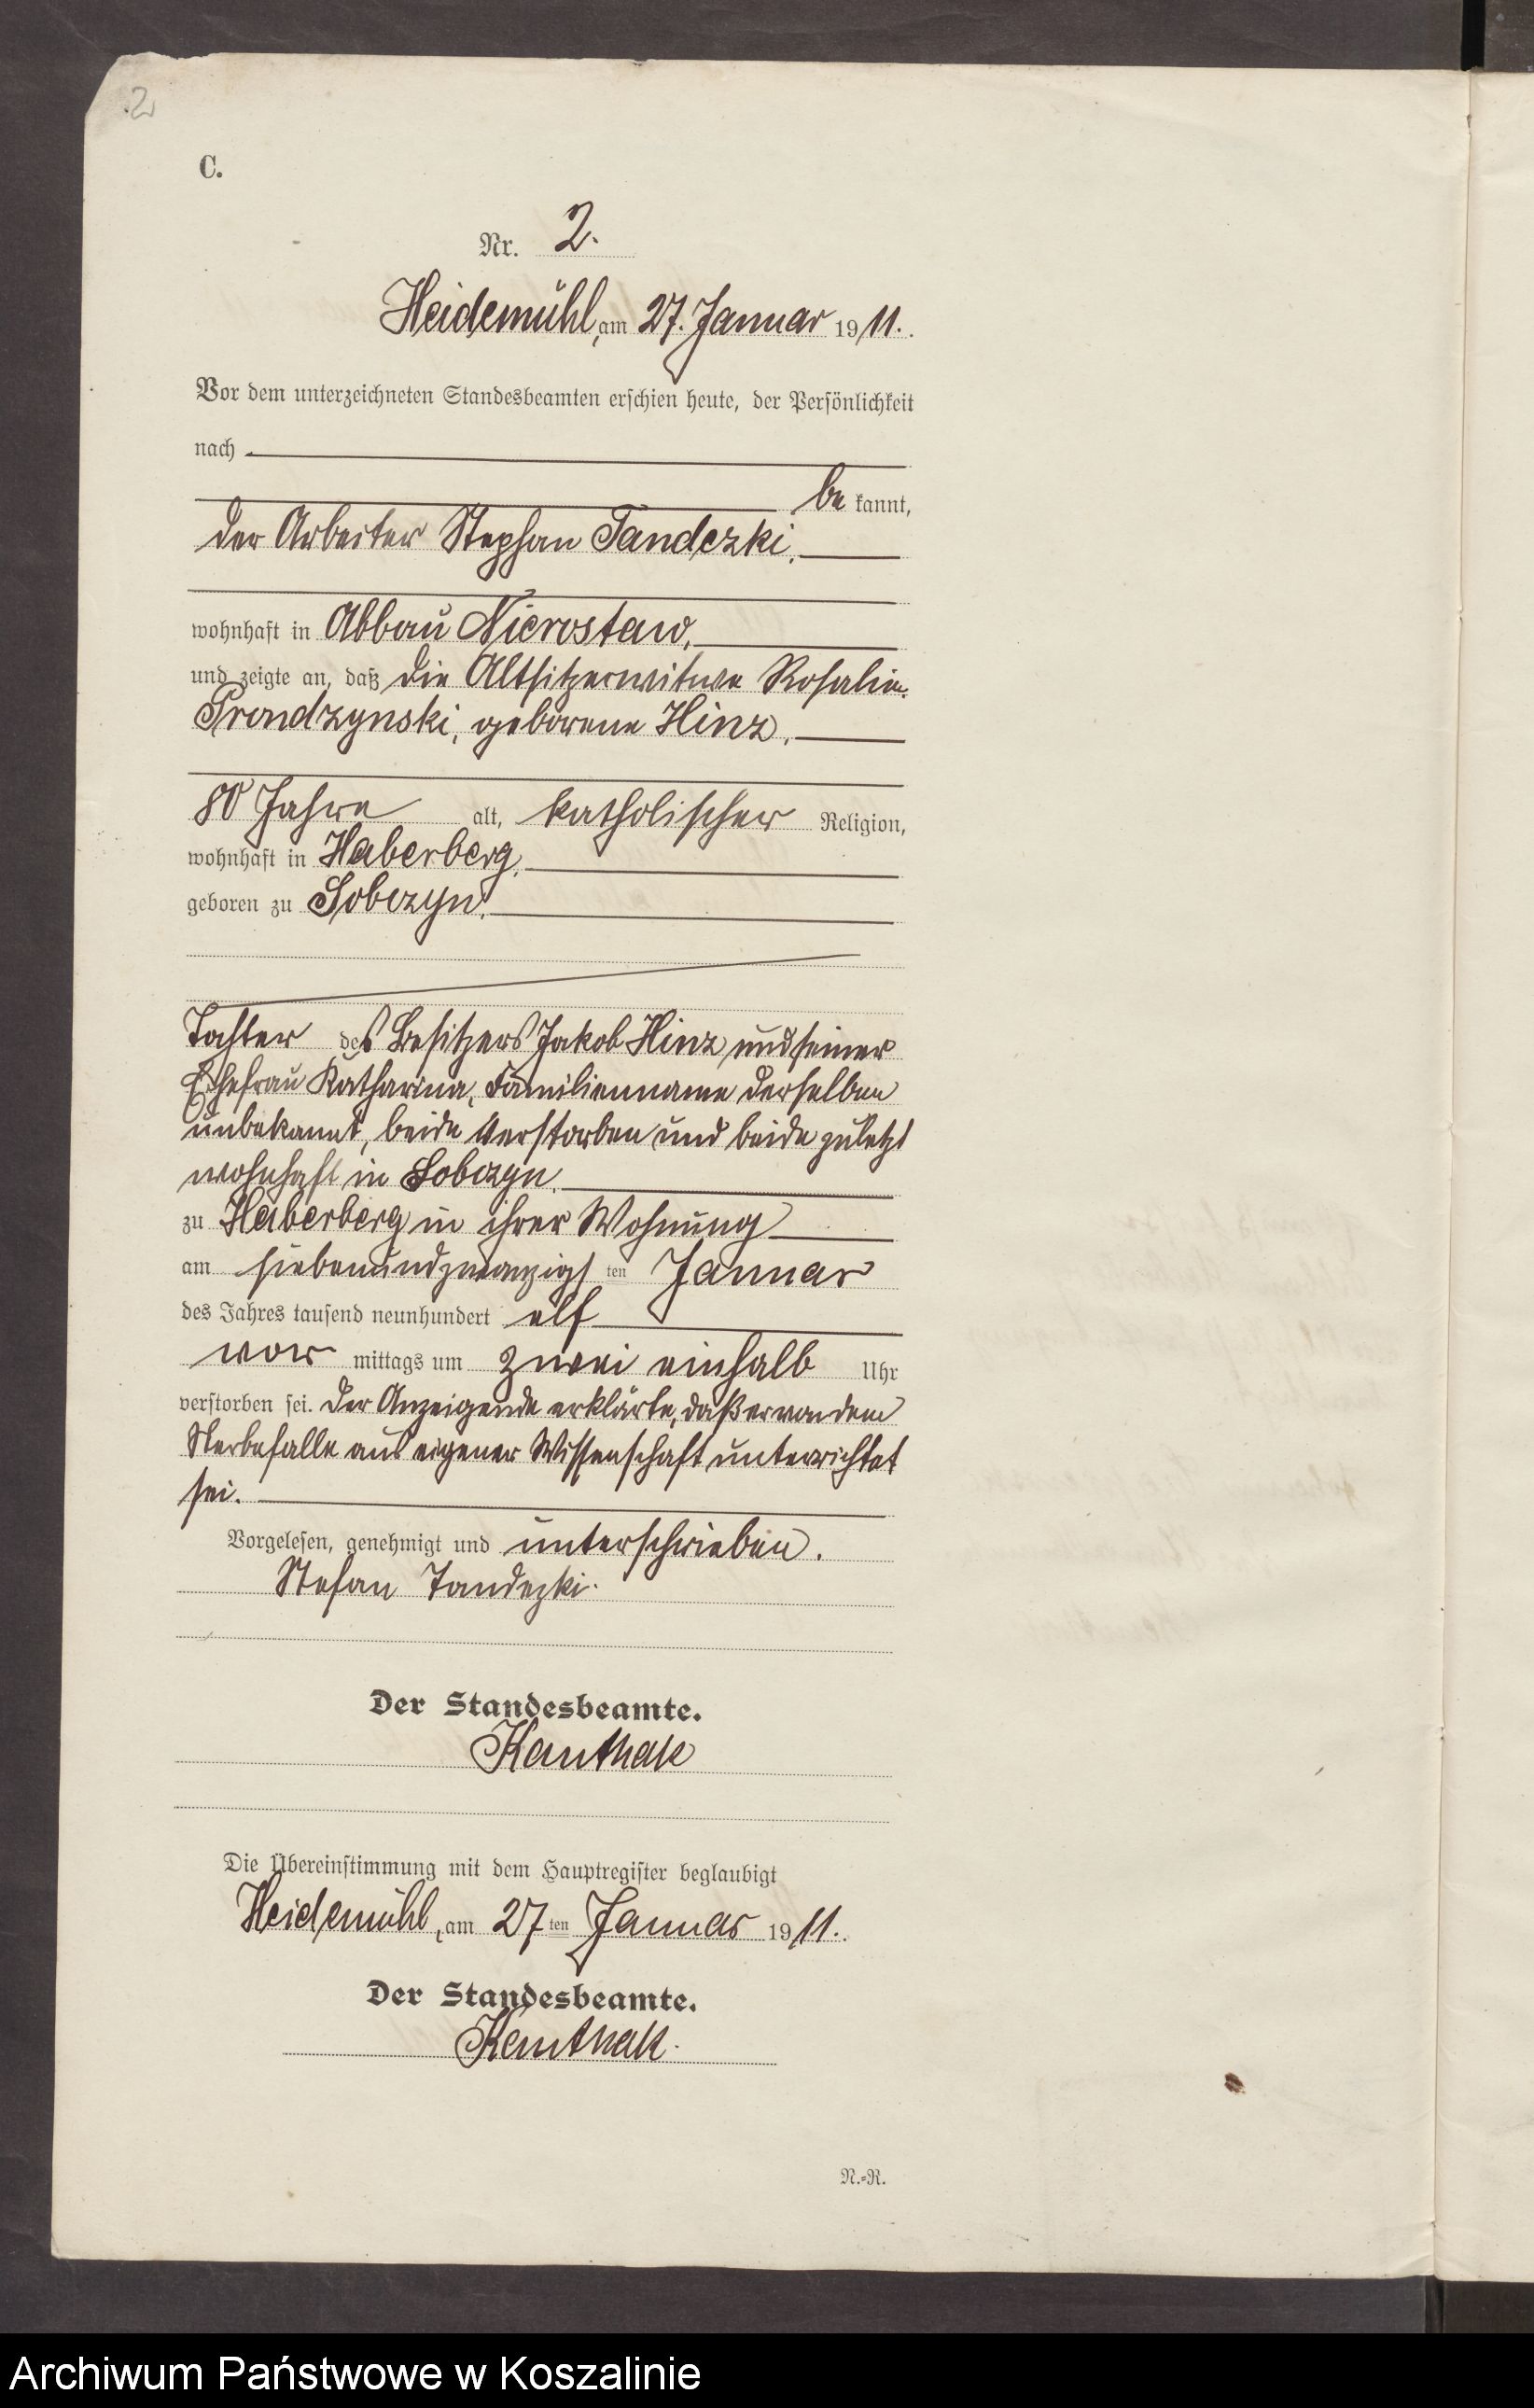 2
C.
Nr. 2.
Heidemühl, am 27. Januar 1911.
Vor dem unterzeichneten Standesbeamten erschien heute, der Persönlichkeit
nach
bekannt,
der Arbeiter Stephan Tandezki,
wohnhaft in Abbau Nierostaw,
und zeigte an, daß die Altsitzerwitwe Rosalie
Prondzynski, geborene Hinz,
80 Jahre alt, katholischer Religion,
wohnhaft in Haberberg,
geboren zu Sobczyn,
Tochter des Besitzers Jakob Hinz und seiner
Ehefrau Katharina, Familienname derselben
unbekannt, beide verstorben und beide zuletzt
wohnhaft in Sobczyn,
zu Haberberg in ihrer Wohnung
am siebenundzwanzigsten Januar
des Jahres tausend neunhundert elf
vor mittags um zwei einhalb Uhr
verstorben sei. Der Anzeigende erklärte, daß er von dem
Sterbefalle aus eigener Wissenschaft unterrichtet
sei.
Vorgelesen, genehmigt und unterschrieben.
Stefan Tandezki.
Der Standesbeamte.
Kauthak
Die Übereinstimmung mit dem Hauptregister beglaubigt
Heidemühl, am 27ten Januar 1911.
Der Standesbeamte.
Kauthak.
N.=R.
Archiwum Państwowe w Koszalinie